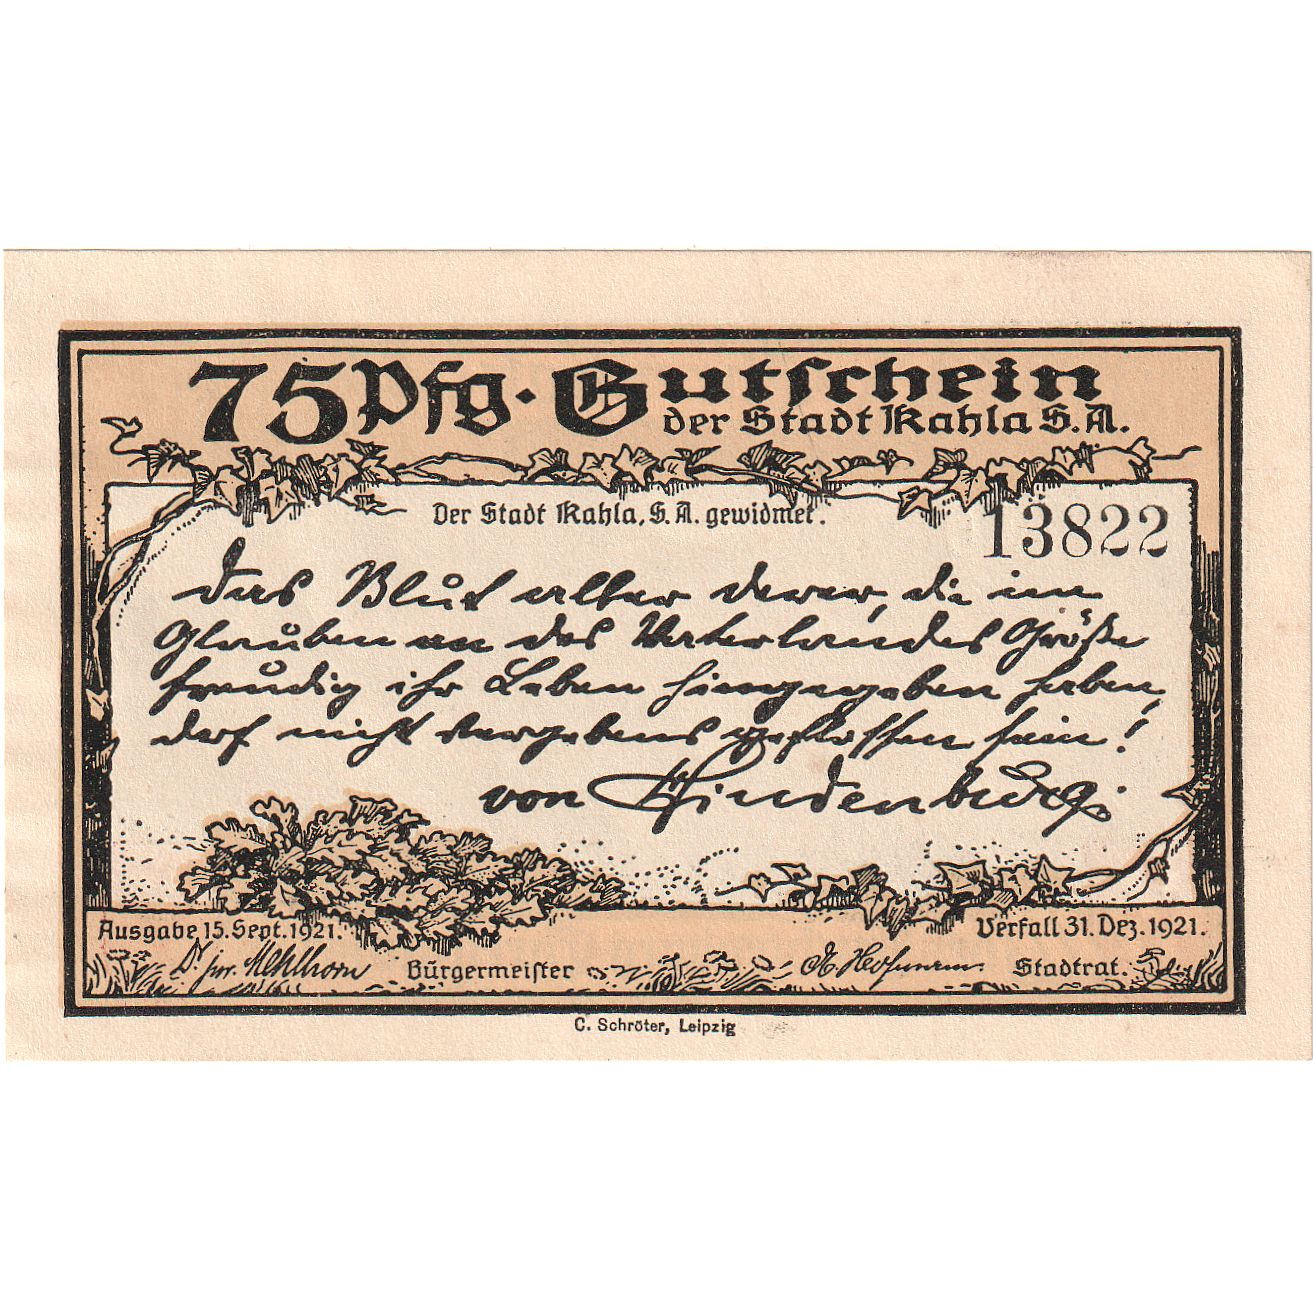 75 Pfg. Gutschein
der Stadt Kahla S.A.
Der Stadt Kahla, S.A. gewidmet.
13822
Das Blut aller derer, die im
Glauben an des Vaterlandes Größe
freudig ihr Leben hingegeben haben,
darf nicht vergebens geflossen sein!
von Hindenburg.
Ausgabe 15. Sept. 1921.
Verfall 31. Dez. 1921.
Dr. jur. Mehlhorn Bürgermeister
Stadtrat.
C. Schröter, Leipzig